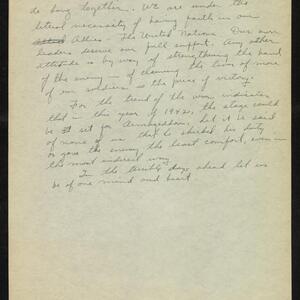 do hang together. We are under the
literal necessity of having faith in our
Allies - The United Nations. Our own
leaders deserve our full support. Any other
attitude is by way of strengthening the hand
of the enemy - of claiming the lives of more
of our soldiers as the price of victory.
For the trend of the war indicates
that - in this year of 1942, the stage could
be set for Armageddon. Let it be said
of none of us that he shirked his duty
or gave the enemy the least comfort, even in
the most indirect way.
In the terrible days ahead let us
be of one mind and heart.